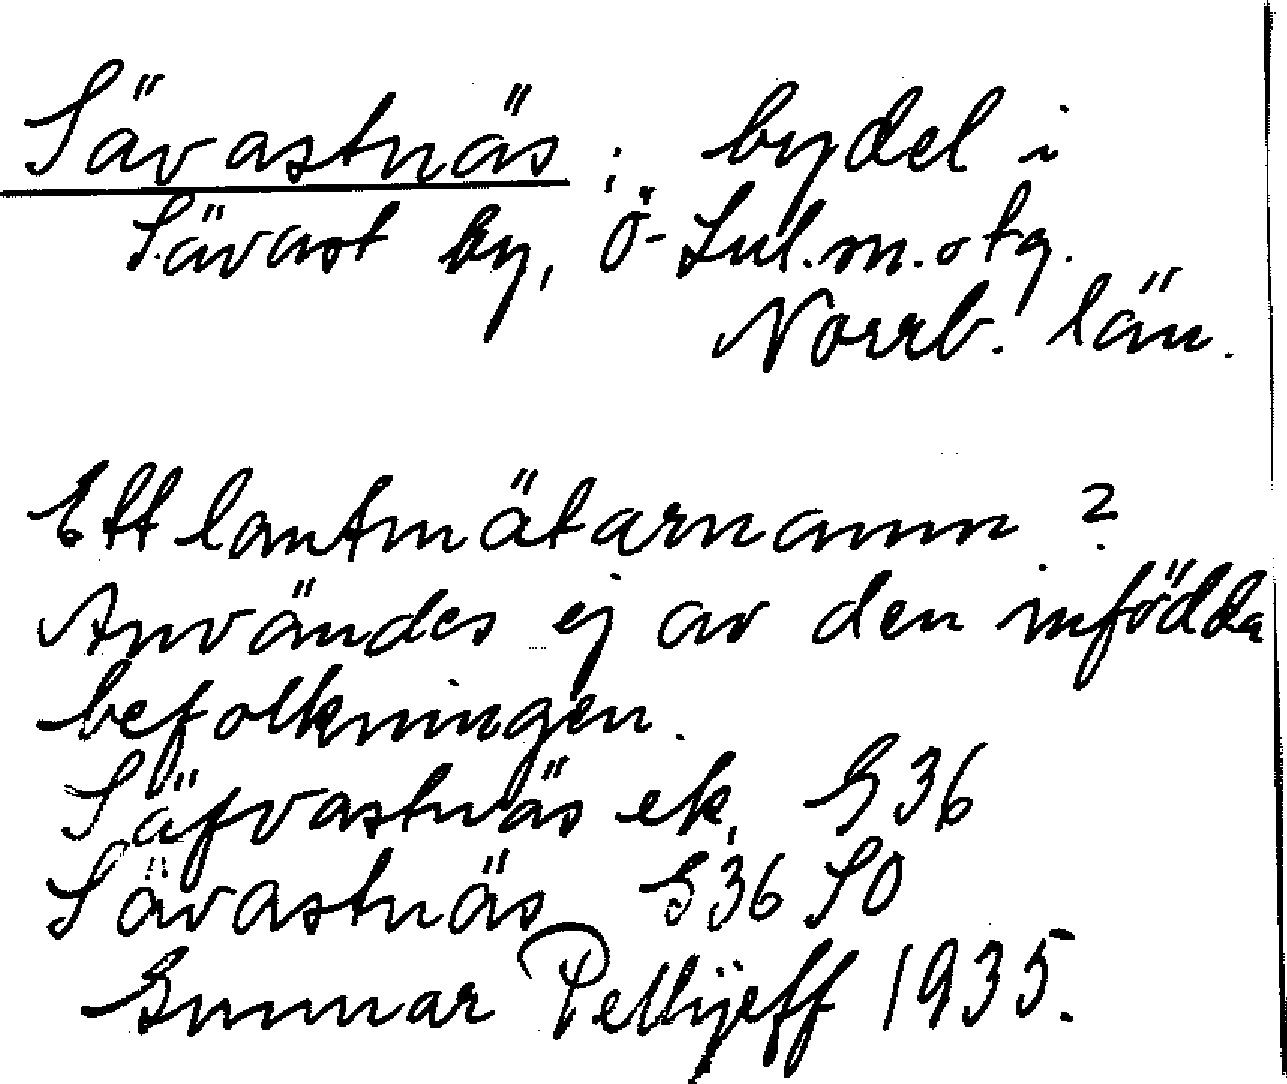 Sävastnäs; bydel i
Sävast by, Ö-Lul. m. o tg.
Norrb. län.
Ett lantmätarnamn?
Användes ej av den infödda
befolkningen.
Säfvastnäs ek, G36
Sävastnäs G36 SO
Gunnar Pellijeff 1935.